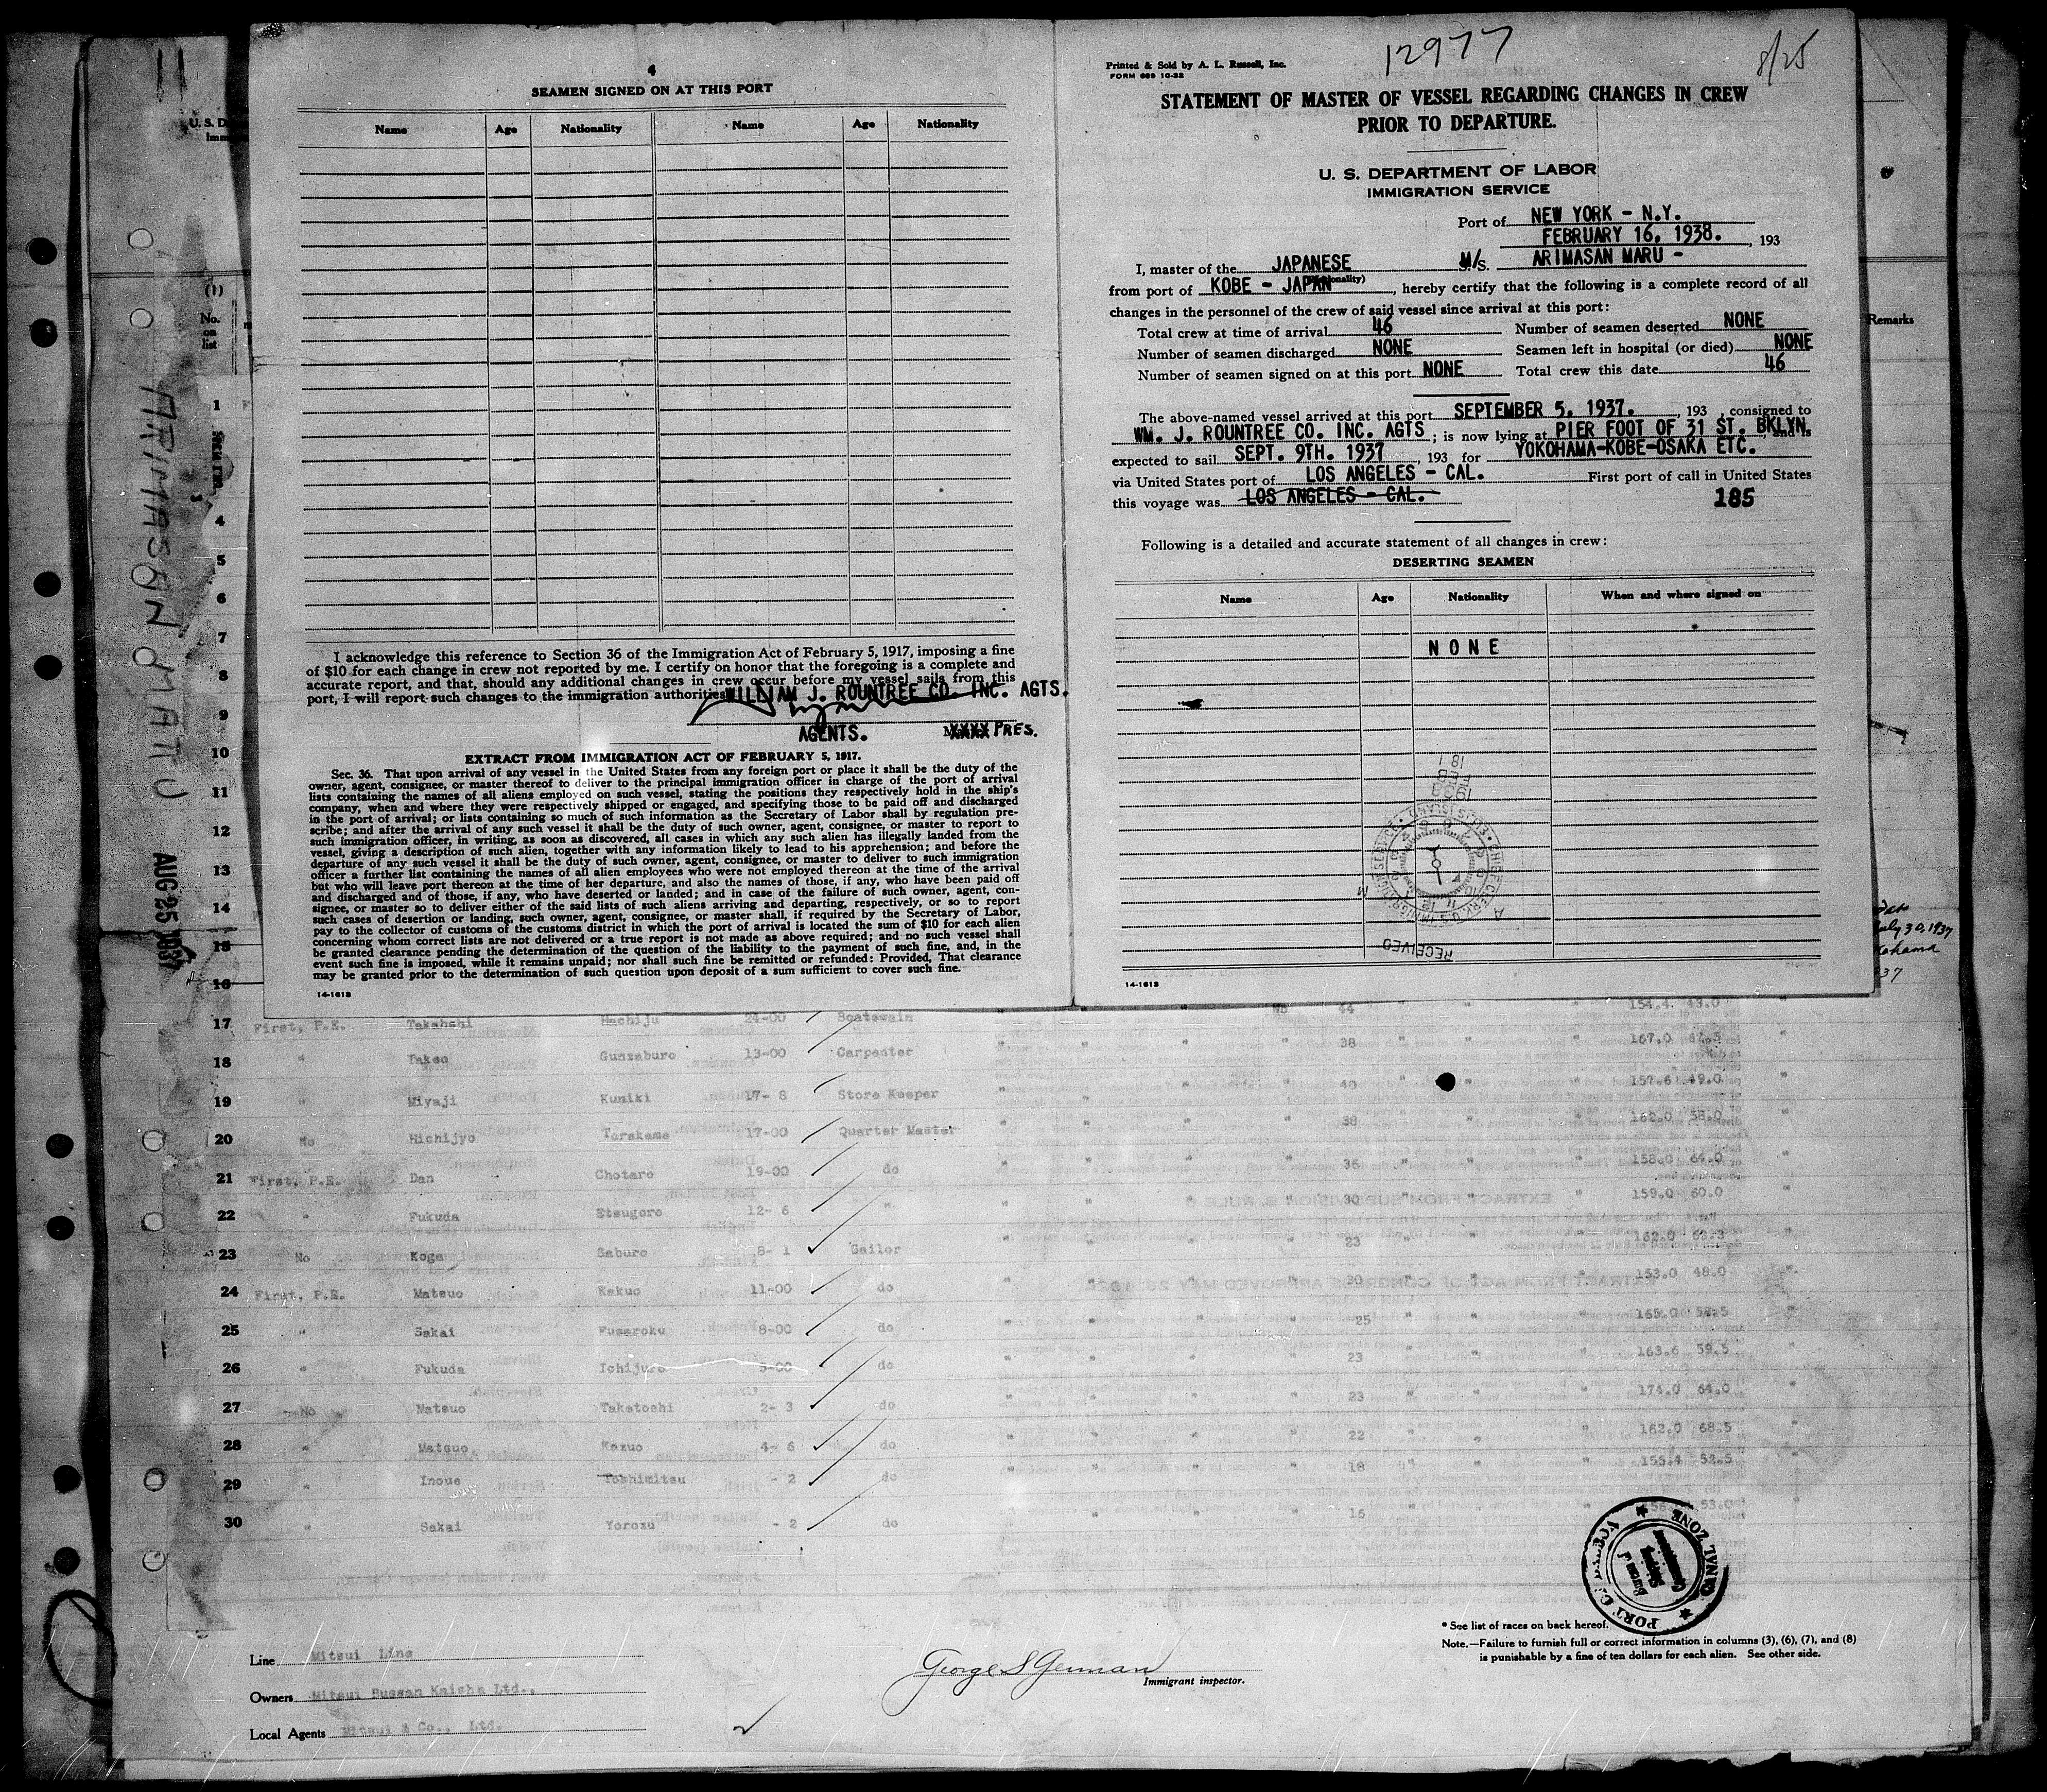 4
SEAMEN SIGNED ON AT THIS PORT
Name Age Nationality Name Age Nationality
I acknowledge this reference to Section 36 of the Immigration Act of February 5, 1917, imposing a fine
of $10 for each change in crew not reported by me. I certify on honor that the foregoing is a complete and
accurate report, and that, should any additional changes in crew occur before my vessel sails from this
port, I will report such changes to the immigration authorities.
WILLIAM J. ROUNTREE CO. INC. AGTS.
AGENTS. PRES.
EXTRACT FROM IMMIGRATION ACT OF FEBRUARY 5, 1917.
Sec. 36. That upon arrival of any vessel in the United States from any foreign port or place it shall be the duty of the
owner, agent, consignee, or master thereof to deliver to the principal immigration officer in charge of the port of arrival
lists containing the names of all aliens employed on such vessel, stating the positions they respectively hold in the ship's
company, when and where they were respectively shipped or engaged, and specifying those to be paid off and discharged
in the port of arrival; or lists containing so much of such information as the Secretary of Labor shall by regulation pre-
scribe; and after the arrival of any such vessel it shall be the duty of such owner, agent, consignee, or master to report to
such immigration officer, in writing, as soon as discovered, all cases in which any such alien has illegally landed from the
vessel, giving a description of such alien, together with any information likely to lead to his apprehension; and before the
departure of any such vessel it shall be the duty of such owner, agent, consignee, or master to deliver to such immigration
officer a further list containing the names of all alien employees who were not employed thereon at the time of the arrival
but who will leave port thereon at the time of her departure, and also the names of those, if any, who have been paid off
and discharged and of those, if any, who have deserted or landed; and in case of the failure of such owner, agent, con-
signee, or master so to deliver either of the said lists of such aliens arriving and departing, respectively, or so to report
such cases of desertion or landing, such owner, agent, consignee, or master shall, if required by the Secretary of Labor,
pay to the collector of customs of the customs district in which the port of arrival is located the sum of $10 for each alien
concerning whom correct lists are not delivered or a true report is not made as above required; and no such vessel shall
be granted clearance pending the determination of the question of the liability to the payment of such fine, and, in the
event such fine is imposed, while it remains unpaid; nor shall such fine be remitted or refunded: Provided, That clearance
may be granted prior to the determination of such question upon deposit of a sum sufficient to cover such fine.
14-1613
12977
8/25
Printed & Sold by A. L. Russell, Inc.
FORM 689 10-32
STATEMENT OF MASTER OF VESSEL REGARDING CHANGES IN CREW
PRIOR TO DEPARTURE.
U. S. DEPARTMENT OF LABOR
IMMIGRATION SERVICE
Port of NEW YORK - N.Y.
FEBRUARY 16, 1938. , 193
I, master of the JAPANESE M/S. ARIMASAN MARU -
from port of KOBE - JAPAN , hereby certify that the following is a complete record of all
changes in the personnel of the crew of said vessel since arrival at this port:
Total crew at time of arrival 46 Number of seamen deserted NONE
Number of seamen discharged NONE Seamen left in hospital (or died) NONE
Number of seamen signed on at this port NONE Total crew this date 46
The above-named vessel arrived at this port SEPTEMBER 5, 1937. , 193 , consigned to
WM. J. ROUNTREE CO. INC. AGTS ; is now lying at PIER FOOT OF 31 ST. BKLYN. , and is
expected to sail SEPT. 9TH. 1937 , 193 for YOKOHAMA-KOBE-OSAKA ETC.
via United States port of LOS ANGELES - CAL. First port of call in United States
this voyage was LOS ANGELES - CAL.
185
Following is a detailed and accurate statement of all changes in crew:
DESERTING SEAMEN
Name Age Nationality When and where signed on
NONE
RECEIVED
14-1613
U. S. D
(1)
No.
on
list
Remarks
ARIMASAN MARU
AUG 25 1937
1
4
5
6
7
8
9
10
11
12
13
14
15
16
July 30, 1937
17 First, P.E. Takahshi Hachiju 24-00 Boatswain 44 154.4 43.0
18 " Takeo Gunzaburo 13-00 Carpenter 38 167.0
19 Miyaji Kuniki 17- 8 Store Keeper 40 157.6 49.0
20 No Hichijyo Torakame 17-00 Quarter Master 38 162.0 58.0
21 First, P.E. Dan Chotaro 19-00 do 36 158.0 64.0
22 " Fukuda Etsugoro 12- 6 " 30 159.0 60.0
23 No Koga Saburo 8- 1 Sailor 23 162.0
24 First, P.E. Matsuo Kakuo 11-00 do 153.0 48.0
25 " Sakai Fusaroku 8-00 do 25 165.0 58.5
26 " Fukuda Ichijuro 5-00 do 23 163.6 59.5
27 No Matsuo Takatoshi 2- 3 do 23 174.0 64.0
28 " Matsuo Kazuo 4- 6 do 22 162.0 68.5
29 " Inoue Toshimitsu - 2 do 18 155.4 52.5
30 " Sakai Yorozu - 2 do 16 53.0
PORT CANAL ZONE
* See list of races on back hereof.
Note.—Failure to furnish full or correct information in columns (3), (6), (7), and (8)
is punishable by a fine of ten dollars for each alien. See other side.
Line Mitsui Line
Owners Mitsui Bussan Kaisha Ltd.,
Local Agents Mitsui & Co., Ltd.
George S German
Immigrant inspector.